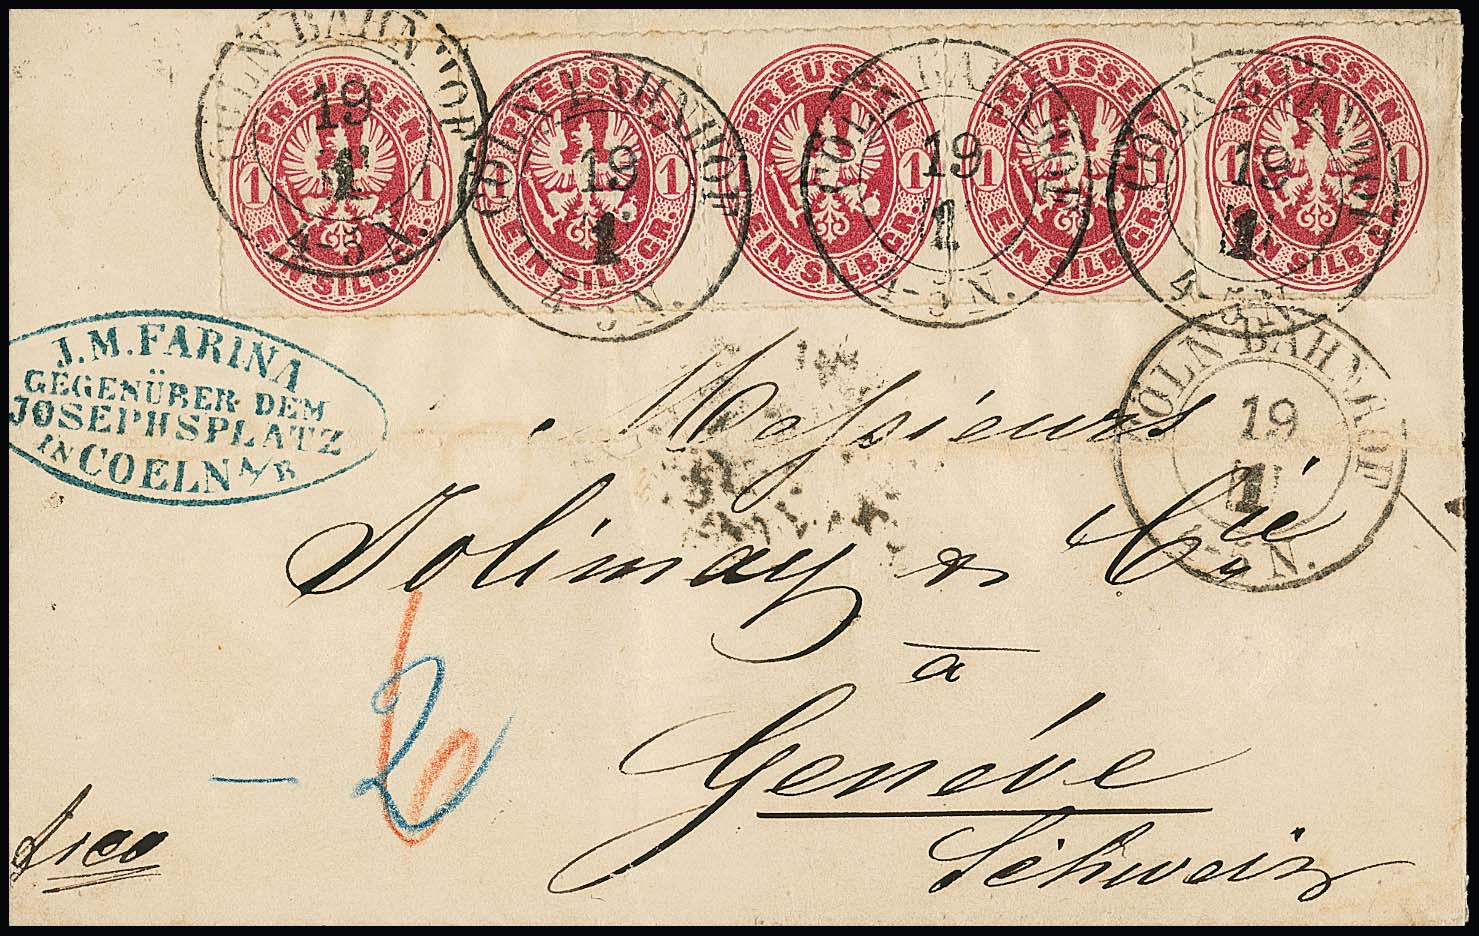 PREUSSEN
1 1
EIN SILB. GR.
PREUSSEN
1
EIN SILB. GR.
PREUSSEN
1
EIN SILB. GR.
PREUSSEN
1 1
EIN SILB. GR.
PREUSSEN
1 1
EIN SILB. GR.
CÖLN BAHNHOF
19
1
4-5 N.
CÖLN BAHNHOF
19
1
4-5 N.
CÖLN BAHNHOF
19
1
4-5 N.
CÖLN BAHNHOF
19
1
4-5 N.
CÖLN BAHNHOF
19
1
4-5 N.
J. M. FARINA
GEGENÜBER DEM
JOSEPHSPLATZ
IN COELN A/R
Messieurs
Solimay & Cie
à
Genéve
Schweiz
6
2
frco